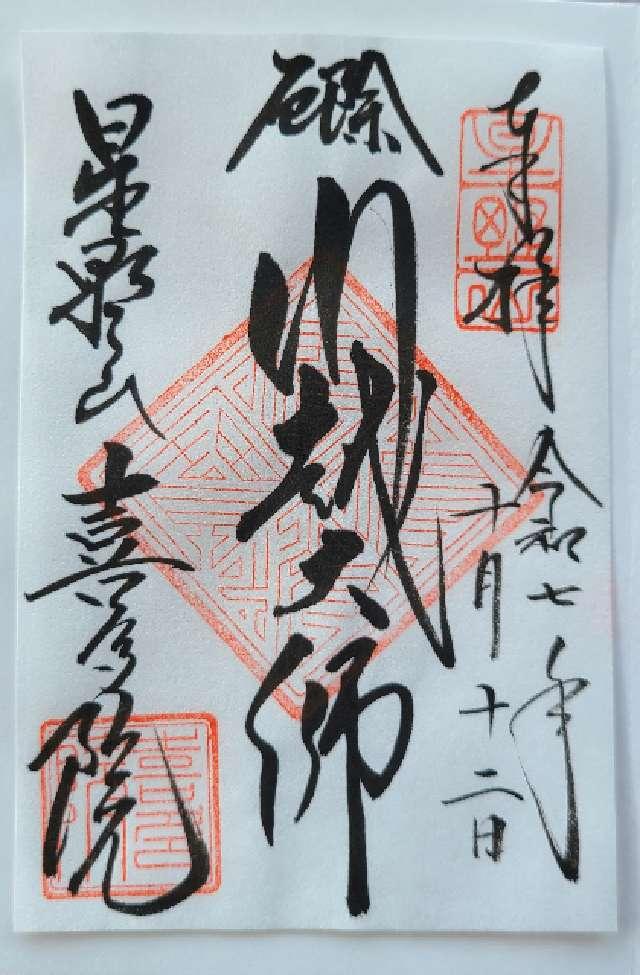 奉拝
令和七年
十月十二日
厄除
川越大師
星野山 喜多院
喜多院